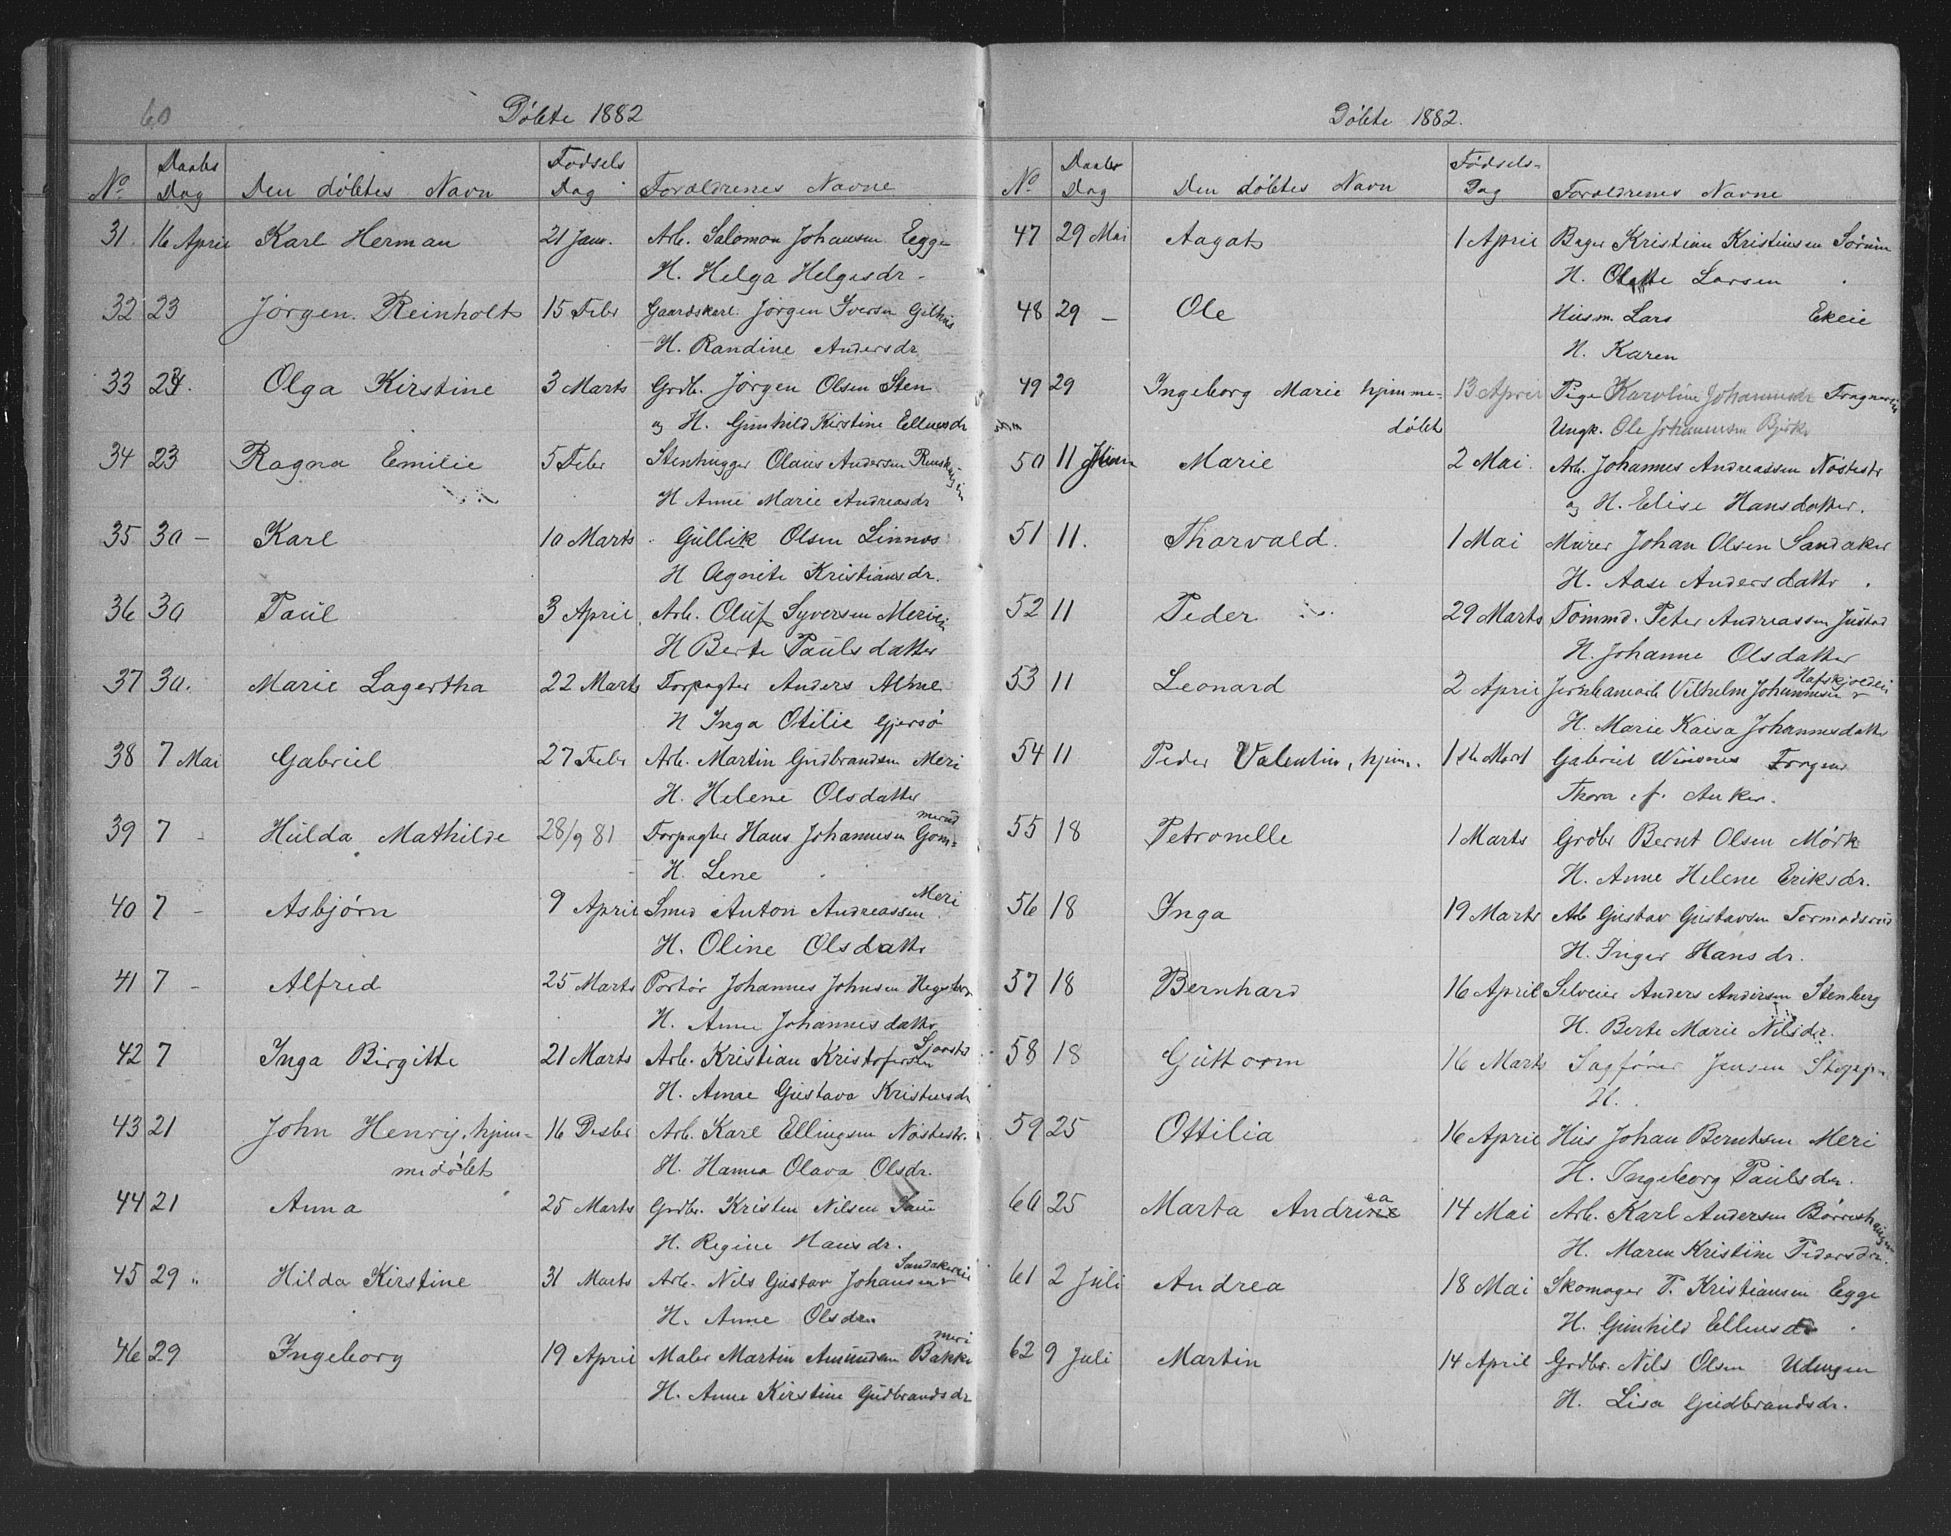 60
Döbte 1882
No Daabs Dag Den döbtes Navn Födsels Dag Foraldrenes Navne
31. 16 April Karl Herman 21 Janr. Arb. Salomon Johansen Egge
H. Helga Helgesdr.
32 23 Jörgen Reinholt 15 Febr Gaardskarl. Jörgen Iversen Gilhus
H. Randine Andersdr
33 23. Olga Kirstine 3 Marts Grdb. Jörgen Olsen Sten
og H. Gunhild Kirstine Ellensdr
34 23 Ragna Emilie 5 Febr Stenhugger Olaus Andersen
H Anne Marie Andreasdr
35 30 – Karl 10 Marts Gullik Olsen Linnes
H Agnete Kristiansdr.
36 30 Paul 3 April Arb. Oluf Syversen Meriei
H Berte Paulsdatter
37 30. Marie Lagertha 22 Marts Forpagter Anders Alme
H Inga Otilie Gjersö
38 7 Mai Gabriel 27 Febr Arb. Martin Gudbrandsen Meri
H. Helene Olsdatter
39 7 - Hulda Mathilde 28/9 81 Forpagter Hans Johannesen Gommerud
H. Lene
40 7 – Asbjørn 9 April Smed Anton Andreassen Meri
H. Oline Olsdattr
41 7 – Alfred 25 Marts Portör Johannes Johnsen
H. Anne Johannesdattr
42 7 Inga Birgitte 21 Marts Arb. Kristian Kristofersen
H. Anne Gustava Kristensdr
43 21 John Henry, hjem=
medöbt 16 Desbr Arb. Karl Ellingsen Nöstestr.
H. Hanna Olava Olsdr.
44 21 Anna 25 Marts Grdbr. Kristen Nilsen
H. Regine Hansdr.
45 29 „ Hilda Kirstine 31 Marts Arb. Nils Gustav Johansen Sandakerei
H. Anne Olsdr.
46 29 Ingeborg 19 April Maler Martin Amundsen Bakke meri
H. Anne Kirstine Gudbrandsdr
Döbte 1882.
No Daabs Dag Den döbtes Navn Födsels- Dag Foraldrenes Navne
47 29 Mai Aagot 1 April Bager Kristian Kristiansen Sörum
H. Larsen
48 29 – Ole Husm. Lars Ekeie
H. Karen
49 29 Ingeborg Marie hjemme-
döbt 13 April Pige Karoline Johannesdr
Ungk. Ole Johannesen Björk
50 11 Juni Marie 2 Mai. Arb. Johannes Andreassen Nöstestr
og H. Elise Hansdatter.
51 11. Thorvald. 1 Mai Murer Johan Olsen Sandaker
H. Aase Andersdattr
52 11 Peder 29 Marts Tömmd. Peter Andreassen Justad
H. Johanne Olsdatter
53 11 Leonard 2 April Vilhelm Johannesen
H. Marie Kaisa Johannesdatter
54 11 Peder Valentin, hjem. Gabriel
Thora f. Anker.
55 18 Petronelle 1 Marts Grdbr Bernt Olsen Mörk
H. Anne Helene Eriksdr.
56 18 Inga 19 Marts Arb Gustav Gustavsen
H. Inger Hansdr.
57 18 Bernhard 16 April Selveier Anders Andersen Stenberg
H. Berte Marie Nilsdr.
58 18 Guttorm 16 Marts Sagförer Jensen
H.
59 25 Ottilia 16 April Hus Johan Berntsen Meri
H. Ingeborg Paulsdr.
60 25 Marta Andrine ea 14 Mai Arb. Karl Andersen
H. Maren Kristine Pedersdr.
61 2 Juli Andrea 18 Mai Skomager P. Kristiansen Egge
H. Gunhild Ellensdr
62 9 Juli Martin 14 April Grdbr. Nils Olsen Udengen
H. Lisa Gudbrandsdr.